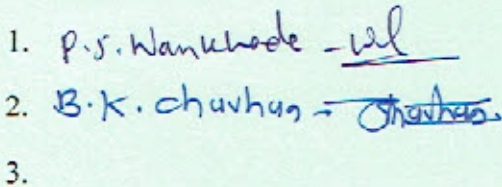 1. P.S. Wankhede -
2. B.K. Chavhan - Chavhan.
3.